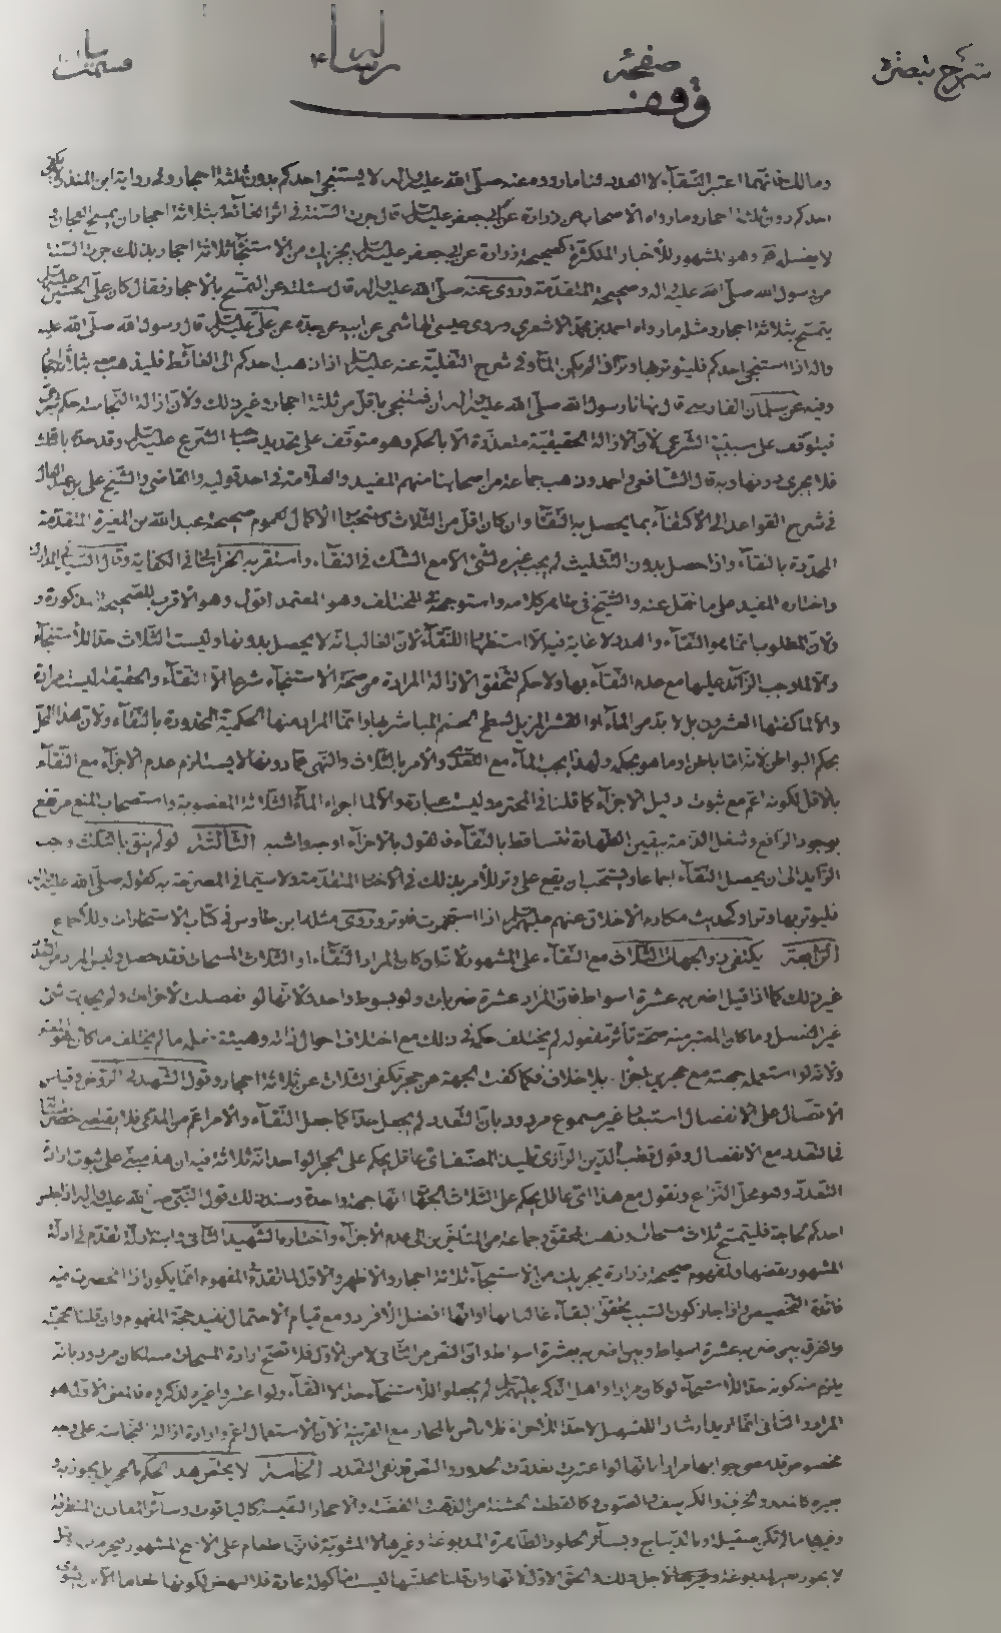 شرح تبصرة صفحه رسالة ۴
وقف
ومالك فانهما اعتبر النقاء لا العدد لنا ما روده عنه صلى الله عليه واله لا يستنجي احدكم بدون ثلثة احجار وفي رواية ابن المنذر لا يكفي
احدكم دون ثلثة احجار وما رواه الاصحاب عن زرارة عن ابي جعفر عليه السلم قال جرت السنة في اثر الغائط بثلاثة احجار وان يمسح العجان
لا يغسله وهو المشهور للأخبار المتكثرة كصحيحة زرارة عن ابي جعفر عليه السلم يجزيك من الاستنجاء ثلاثة احجار بذلك جرت السنة
من رسول الله صلى الله عليه واله وصحيحة المتقدمة وروى عنه صلى الله عليه واله قال سئلته عن التمسح بالاحجار فقال كان علي الحسين عليه السلم
يتمسح بثلاثة احجار ومثله ما رواه احمد بن محمد الاشعري وروى عيسى الهاشمي عن ابيه عن جده عن علي عليه السلم قال رسول الله صلى الله عليه
واله اذا استنجى احدكم فليوتر بها وترا اذا لم يكن الماء وفي شرح النفلية عنه عليه السلم اذا ذهب احدكم الى الغائط فليذهب معه بثلاثة احجار
وفيه عن سلمان الفارسي قال نهانا رسول الله صلى الله عليه واله ان نستنجي باقل من ثلثة احجار وغير ذلك ولان ازالة النجاسة حكم شرعي
فيتوقف على سببية الشرعي لان الازالة الحقيقية متعذرة الا بالحكم وهو متوقف على تحديد صاحب الشرع عليه السلم وقد حده بالثلاث
فلا يجزي دونها وبه قال الشافعي واحمد وذهب جماعة من اصحابنا منهم المفيد والعلامة في احد قوليه والقاضي والشيخ علي بن عبد العال
في شرح القواعد الى الاكتفاء بما يحصل به النقاء وان كان اقل من الثلاث الاكمال لعموم صحيحة عبد الله بن المغيرة المتقدمة
المحددة بالنقاء واذا حصل بدون التثليث لم يجب غيره لشئ الا مع الشك في النقاء واستقربه في الكفاية وقال السيد في المدارك
واختاره المفيد على ما نقل عنه والشيخ في ظاهر كلامه واستوجهه في المختلف وهو المعتمد اقول وهو الاقرب للصحيحة المذكورة و
ولان المطلوب انما هو النقاء والعدد لا غاية فيه الا استظهارا للنقاء لان الغالب انه لا يحصل بدونها وليست الثلاث حدا للاستنجاء
والا لما وجب الزائد عليها مع عدم النقاء بها ولا حكم لتحقق الازالة المرادة من صحة الاستنجاء شرعا الا النقاء والحقيقة ليست مرادة
والا لما كفتها العشرون بل لا بد من الماء او القشر المزيل لسطح الجسم المباشر بها وانما المراد منها الحكمية المحدودة بالنقاء ولان هذا المحل
بحكم البواطن لانه اما باطن او ما هو بحكمه ولهذا يجب الماء مع التعدي والامر بالثلاث والنهي عما دونها لا يستلزم عدم الاجزاء مع النقاء
بالاقل لكونه اعم مع ثبوت دليل الاجزاء كما قلنا في المحترم وليست عبادة والا لما اجزاء الماء الثلاثة المغصوبة واستصحاب المنع مرتفع
بوجود الرافع وشغل الذمة بيقين الطهارة تساقط بالنقاء فالقول بالاجزاء اوجه واشبه الثالثة لو لم ينق بالثلاث وجب
الزايد الى ان يحصل النقاء اجماعا ويستحب ان يقع على وتر للأمر بذلك في الاخبار المتقدمة ولا سيما في المصرحة به كقوله صلى الله عليه واله
فليوتر بها وترا وكحديث مكارم الاخلاق عنهم عليهم السلم اذا استجمرت فاوتر وروى مثله ابن طاوس في كتاب الاستخارات وللأجماع
الرابعة يكتفي بذي الجهات الثلاث مع النقاء على المشهور لانه ان كان المراد النقاء او الثلاث المسحات فقد حصل وليس المراد من العدد
غير ذلك كما اذا قيل اضربه عشرة اسواط فان المراد عشرة ضربات ولو بسوط واحد ولانها لو انفصلت لاجزأت ولم يحدث شئ
غير الفصل وما كان المعتبر منه صحة تأثر مفعوله لم يختلف حكمه في ذلك مع اختلاف احوال ذاته وهيئته ما لم يختلف ما كان
ولانه لو استعمله جهته مع حجرين اجزأ بلا خلاف فكما كفت الجهة عن حجر تكفي الثلاث عن ثلاثة احجار وقول الشهيد في الروض وقياس
الاتصال على الانفصال استبعادا غير مسموع مردود بان التعدد لم يجعل حدا كما جعل النقاء والامر اعم من المدعى فلا
في التعدد مع الانفصال وقول قطب الدين الرازي تلميذ المصنف اي عاقل يحكم على الحجر الواحد انه ثلاثة فيه ان هذا مبني على ثبوت ارادة
التعدد وهو محل النزاع ونقول مع هذا اي عاقل يحكم على الثلاث الجهات انها جهة واحدة وسند ذلك قول النبي صلى الله عليه واله اذا جلس
احدكم لحاجة فليتمسح ثلاث مسحات وذهب المحقق وجماعة من المتأخرين الى عدم الاجزاء واختاره الشهيد الثاني وابنه ادلة تقدم في ادلة
المشهور بعضها ولمفهوم صحيحة زرارة يجزيك من الاستنجاء ثلاثة احجار والاظهر والاول لما تقدم المفهوم انما يكون اذا انحصرت فيه
فائدة التخصيص واذا جاز كون السبب تحقق النقاء غالبا بها او انها افضل الافراد ومع قيام الاحتمال نفيد حجة المفهوم وان قلنا بحجيته
والفرق بين ضربه عشرة اسواط وبين اضربه بعشرة اسواط وان النص من الثاني لا من الاول فلا تصح ارادة المسحات مردود بانه
يلزم منه كونه حدا للاستنجاء لو كان مرادا واهل الذكر عليهم السلم لم يجعلوا للاستنجاء حدا الا النقاء ولو اعتبروا غيره لذكروه فالمعنى الاول هو
المراد والثاني انما اريد ارشادا للتسهيل لاحدا للأجزاء فلا بأس بالمجاز مع القرينة لان الاستعمال اعم وارادة ازالة النجاسة على وجه
مخصوص قد مضى جوابها مرارا بانها لو اعتبرت تعددت الحدود والنص قد نفى التعدد الخامسة لا يختص هذا الحكم بالحجر بل يجوز به و
بغيره كالمدر والخزف والكرسف والصوف وكالقطعة الخشنة من الذهب والفضة والاحجار النفيسة كالياقوت وسائر المعادن المنطرقة
وغيرها ما لم تكن صقيلة وبالديباج وبسائر الجلود الطاهرة المدبوغة وغيرها لا المشوية فانها طعام على الاصح المشهور
لا يجوز بغير المدبوغة لاجل ذلك والحق الاول لانها وان قلنا بحليتها ليست مأكولة عادة فلا ينهض لكونها طعاما الا ان